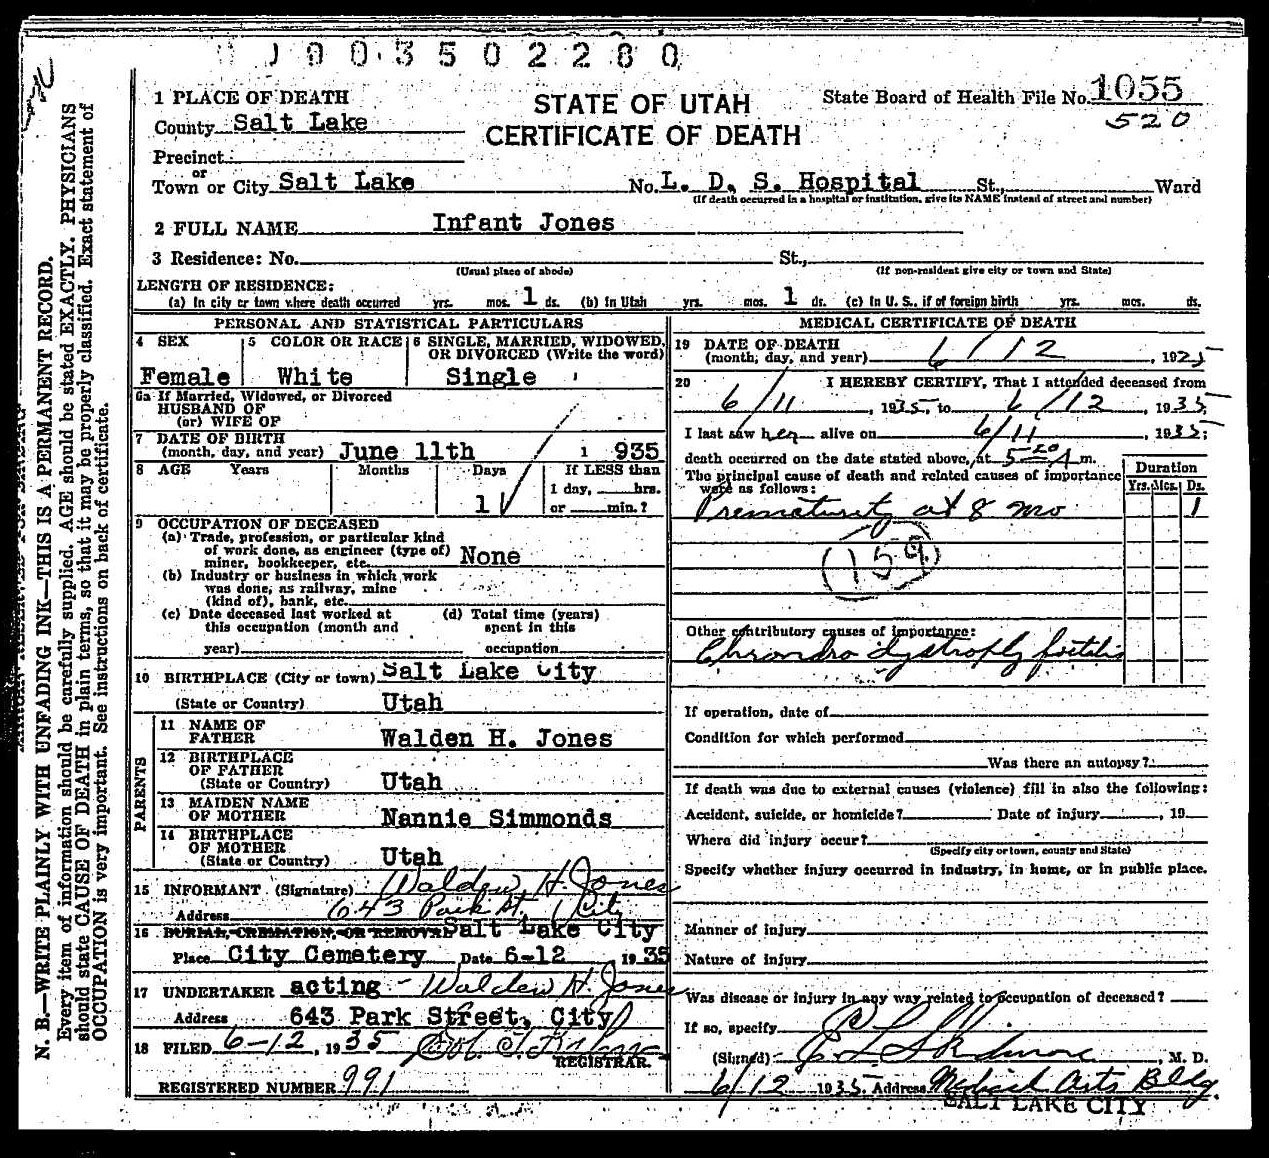 1003502280
1 PLACE OF DEATH
County Salt Lake
STATE OF UTAH
CERTIFICATE OF DEATH
State Board of Health File No. 1055
520
Precinct
or
Town or City Salt Lake No. L. D. S. Hospital St., Ward
(If death occurred in a hospital or institution, give its NAME instead of street and number)
2 FULL NAME Infant Jones
3 Residence: No. St.,
(Usual place of abode) (If non-resident give city or town and State)
LENGTH OF RESIDENCE:
(a) In city or town where death occurred yrs. mos. 1 ds. (b) In Utah yrs. mos. 1 ds. (c) In U. S., if of foreign birth yrs. mos. ds.
PERSONAL AND STATISTICAL PARTICULARS
4 SEX 5 COLOR OR RACE 6 SINGLE, MARRIED, WIDOWED,
OR DIVORCED (Write the word)
Female White Single
6a If Married, Widowed, or Divorced
HUSBAND OF
(or) WIFE OF
7 DATE OF BIRTH
(month, day, and year) June 11th 1 935
8 AGE Years Months Days If LESS than
1 day, hrs.
1 or min.?
9 OCCUPATION OF DECEASED
(a) Trade, profession, or particular kind
of work done, as engineer (type of)
miner, bookkeeper, etc. None
(b) Industry or business in which work
was done, as railway, mine
(kind of), bank, etc.
(c) Date deceased last worked at (d) Total time (years)
this occupation (month and spent in this
year) occupation
10 BIRTHPLACE (City or town) Salt Lake City
(State or Country) Utah
PARENTS
11 NAME OF
FATHER Walden H. Jones
12 BIRTHPLACE
OF FATHER
(State or Country) Utah
13 MAIDEN NAME
OF MOTHER Nannie Simmonds
14 BIRTHPLACE
OF MOTHER
(State or Country) Utah
15 INFORMANT (Signature) Walden H. Jones
Address 643 Park St, City
16 BURIAL, CREMATION, OR REMOVAL Salt Lake City
Place City Cemetery Date 6-12 1935
17 UNDERTAKER acting - Walden H. Jones
Address 643 Park Street, City
18 FILED 6-12, 1935
REGISTRAR.
REGISTERED NUMBER 991
MEDICAL CERTIFICATE OF DEATH
19 DATE OF DEATH
(month, day, and year) 6/12, 1935
20 I HEREBY CERTIFY, That I attended deceased from
6/11, 1935, to 6/12, 1935,
I last saw her alive on 6/11, 1935;
death occurred on the date stated above, at 5 20 A m.
The principal cause of death and related causes of importance
were as follows:
Duration
Yrs. Mos. Ds.
Prematurity at 8 mo 1
159
Other contributory causes of importance:
Chrondro dystrophy foetalis
If operation, date of
Condition for which performed
Was there an autopsy?
If death was due to external causes (violence) fill in also the following:
Accident, suicide, or homicide? Date of injury, 19
Where did injury occur?
(Specify city or town, county and State)
Specify whether injury occurred in industry, in home, or in public place.
Manner of injury
Nature of injury
Was disease or injury in any way related to occupation of deceased?
If so, specify
(Signed) C L Skidmore, M. D.
6/12 1935 Address Medical Arts Bldg.
SALT LAKE CITY
N. B.—WRITE PLAINLY WITH UNFADING INK—THIS IS A PERMANENT RECORD.
Every item of information should be carefully supplied. AGE should be stated EXACTLY. PHYSICIANS
should state CAUSE OF DEATH in plain terms, so that it may be properly classified. Exact statement of
OCCUPATION is very important. See instructions on back of certificate.